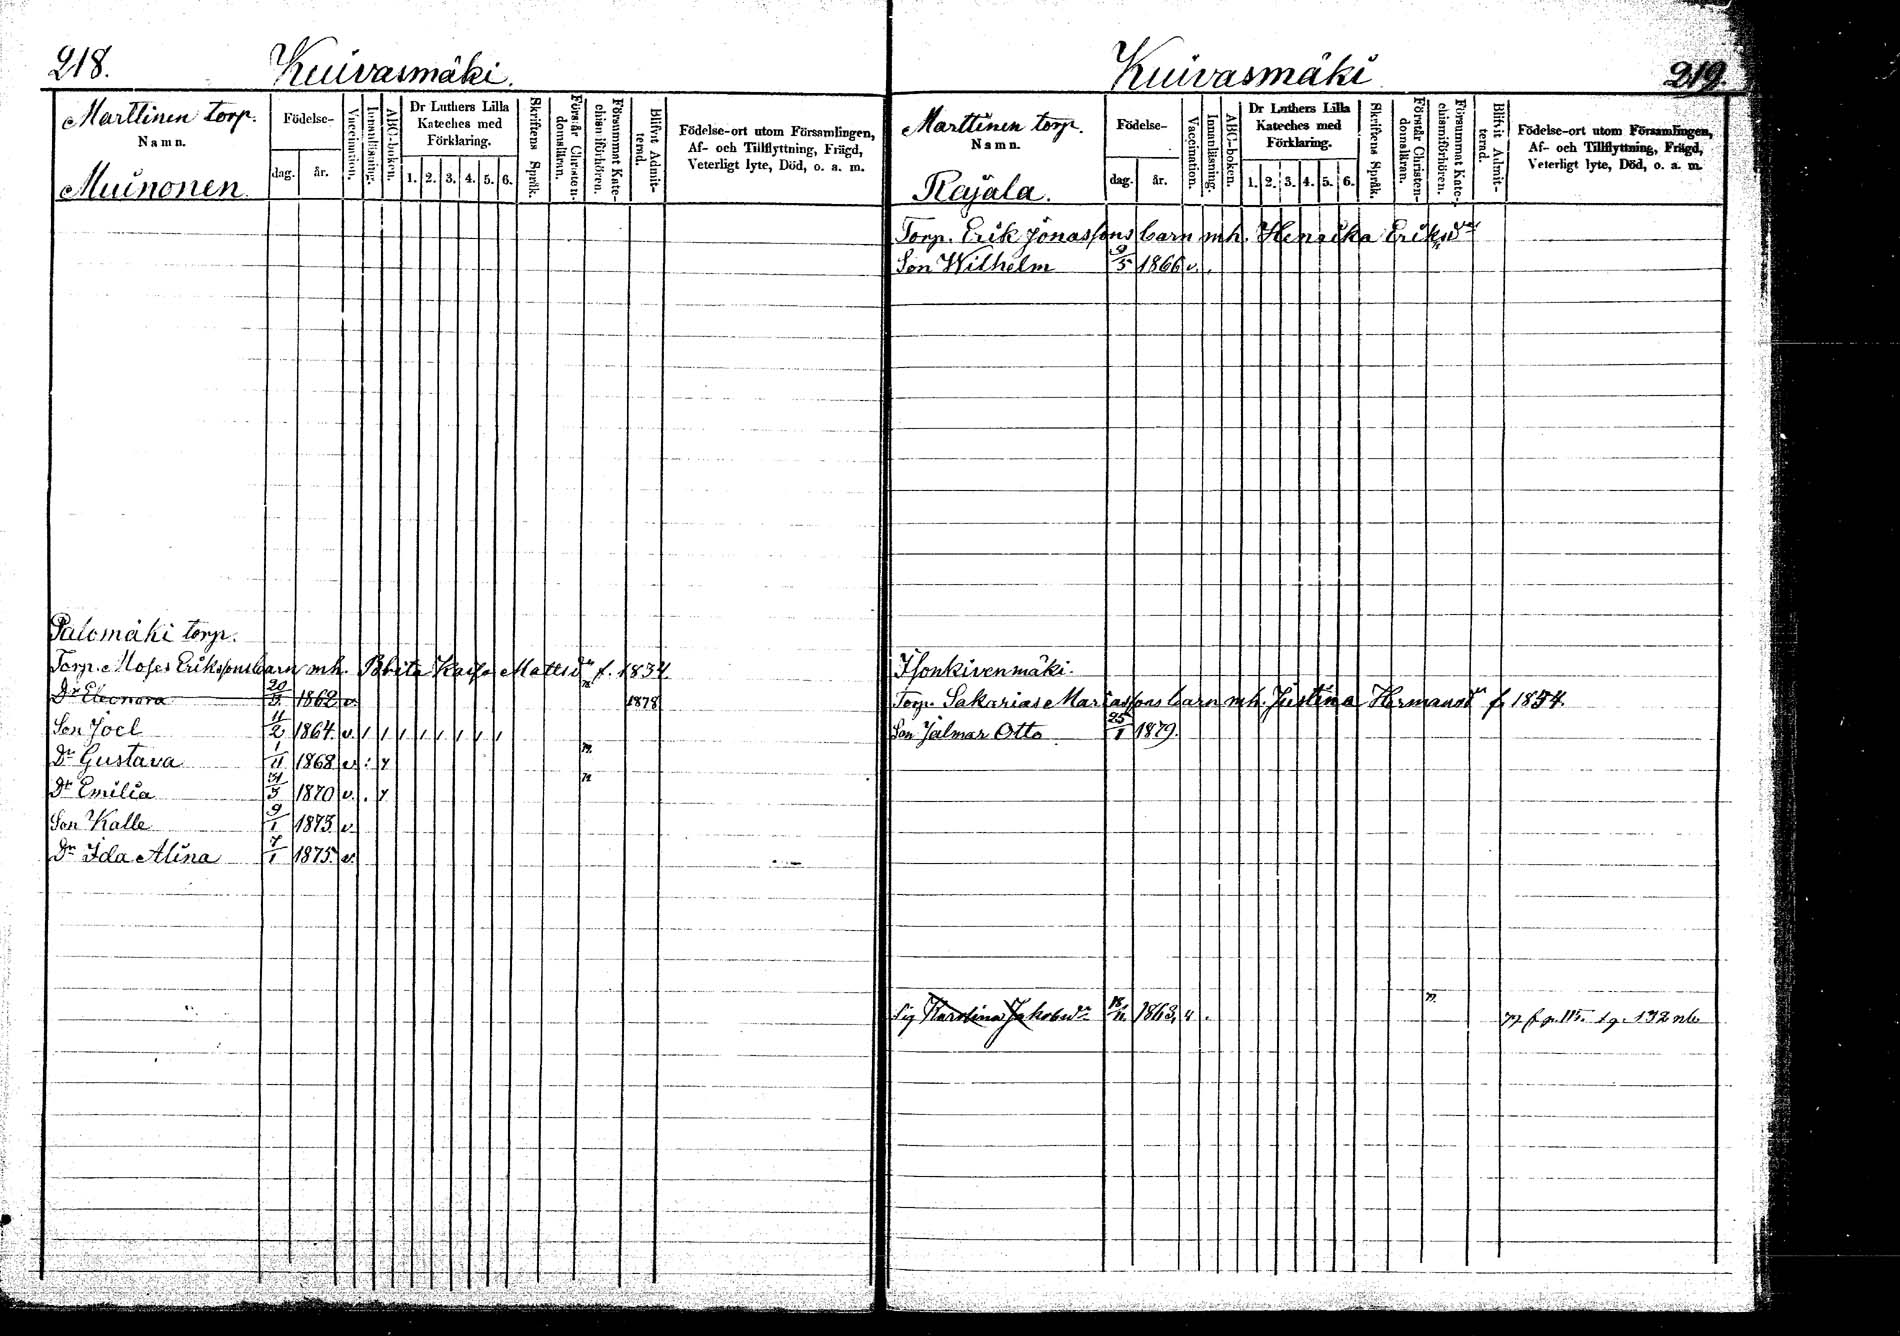 218.
Kuivasmäki.
Marttinen torp.
Namn.
Muinonen.
Födelse-
dag.
år.
Vaccination.
Innanläsning.
ABC-boken.
Dr Luthers Lilla
Kateches med
Förklaring.
1. 2. 3. 4. 5. 6.
Skriftens Språk.
Förstår Christen-
domsläran.
Försummat Kate-
chismiförhören.
Blifvit Admit-
terad.
Födelse-ort utom Församlingen,
Af- och Tillflyttning, Frägd,
Veterligt lyte, Död, o. a. m.
Palomäki torp.
Torp. Moses Erikssons barn mh. Brita Kaisa Mattsdr f. 1834.
Dr Eleonora 20/3 1862 v. 1878
Son Joel 11/2 1864 v.
Dr Gustava 1/11 1868 v.
Dr Emilia 31/3 1870 v.
Son Kalle 9/1 1873 v.
Dr Ida Alina 7/1 1875 v.
Kuivasmäki
219.
Marttinen torp.
Namn.
Rajala.
Födelse-
dag.
år.
Vaccination.
Innanläsning.
ABC-boken.
Dr Luthers Lilla
Kateches med
Förklaring.
1. 2. 3. 4. 5. 6.
Skriftens Språk.
Förstår Christen-
domsläran.
Försummat Kate-
chismiförhören.
Blifvit Admit-
terad.
Födelse-ort utom Församlingen,
Af- och Tillflyttning, Frägd,
Veterligt lyte, Död, o. a. m.
Torp. Erik Jonassons barn mh. Henrika Eriksdr
Son Wilhelm 9/5 1866 v.
Isonkivenmäki.
Torp. Sakarias Mariassons barn mh. Justina Hermansdr f. 1854.
Son Jalmar Otto 25/1 1879.
Karolina Jakobsdr 18/11 1863